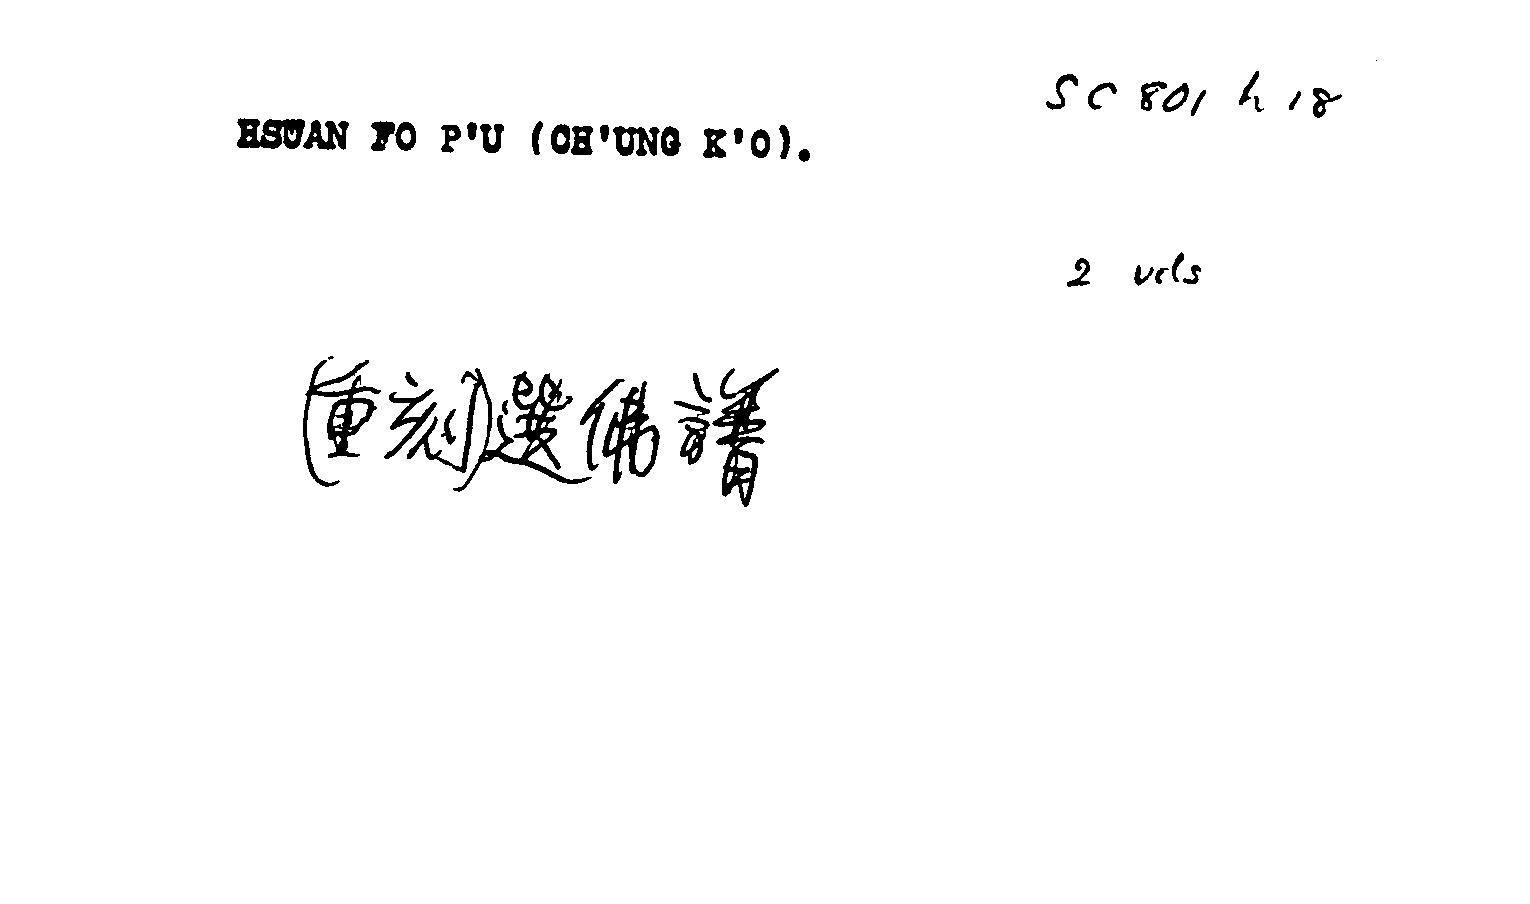 SC 801 h 18
HSUAN FO P'U (CH'UNG K'O).
2 vols
(重刻)選佛譜